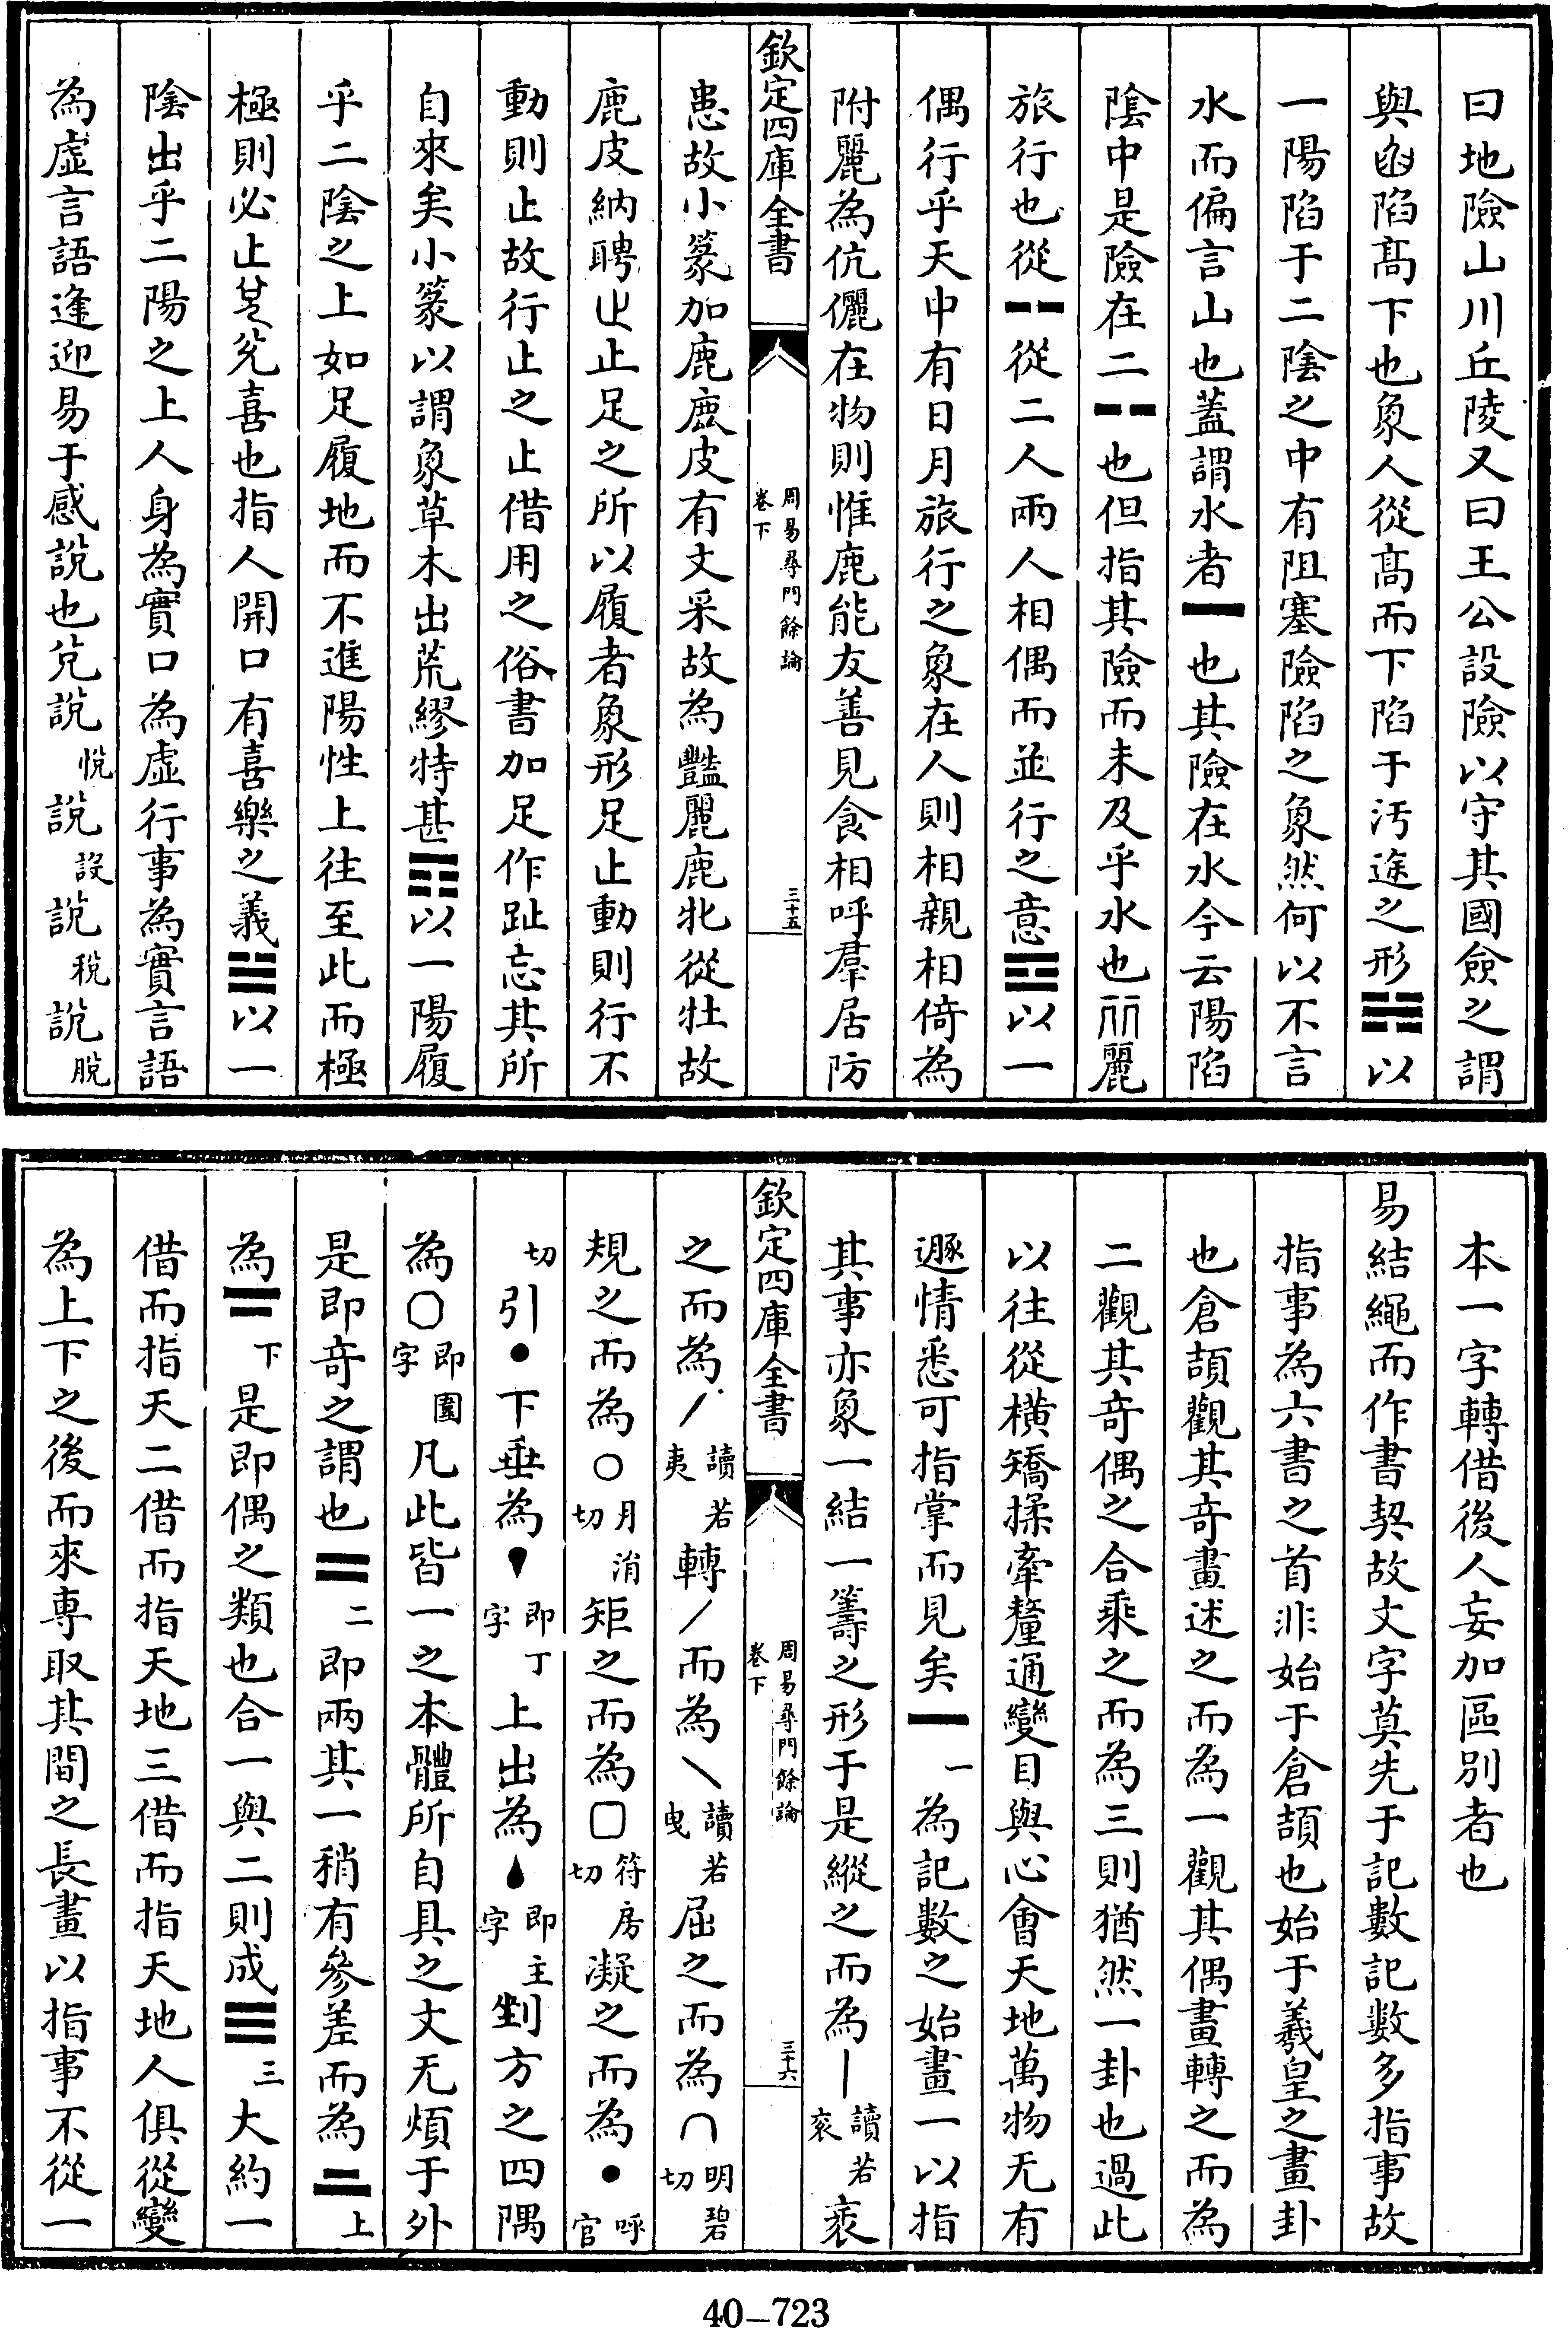 曰地險山川丘陵又曰王公設險以守其國僉之謂
與臽陷髙下也象人從髙而下陷于汚途之形☵以
一陽陷于二陰之中有阻塞險陷之象然何以不言
水而偏言山也蓋謂水者⚊也其險在水今云陽陷
陰中是險在二⚋也但指其險而未及乎水也丽麗
旅行也從⚋從二人兩人相偶而並行之意☲以一
偶行乎天中有日月旅行之象在人則相親相倚為
附麗為伉儷在物則惟鹿能友善見食相呼羣居防
欽定四庫全書
周易尋門餘論
卷下
三十五
患故小篆加鹿鹿皮有文采故為豔麗鹿牝從牡故
鹿皮納聘止止足之所以履者象形足止動則行不
動則止故行止之止借用之俗書加足作趾忘其所
自來矣小篆以謂象草木出荒繆特甚☶以一陽履
乎二陰之上如足履地而不進陽性上往至此而極
極則必止兌兊喜也指人開口有喜樂之義☱以一
陰出乎二陽之上人身為實口為虛行事為實言語
為虛言語逢迎易于感說也兊說悅說設說稅說脫
本一字轉借後人妄加區別者也
易結繩而作書契故文字莫先于記數記數多指事故
指事為六書之首非始于倉頡也始于羲皇之畫卦
也倉頡觀其奇畫述之而為一觀其偶畫轉之而為
二觀其奇偶之合乘之而為三則猶然一卦也過此
以往從橫矯揉牽釐通變目與心會天地萬物无有
遯情悉可指掌而見矣⚊一為記數之始畫一以指
其事亦象一結一籌之形于是縱之而為丨讀若衮衮
欽定四庫全書
周易尋門餘論
卷下
三十六
之而為丿讀若夷轉丿而為乀讀若曳屈之而為∩明碧切
規之而為○月消切矩之而為□符房切凝之而為●呼官
切引●下垂為丁即丁字上出為丶即主字剉方之四隅
為〇即圓字凡此皆一之本體所自具之文无煩于外
是即奇之謂也二二即兩其一稍有參差而為⼆上
為⼆下是即偶之類也合一與二則成☰三大約一
借而指天二借而指天地三借而指天地人俱從變
為上下之後而來専取其間之長畫以指事不從一
40—723